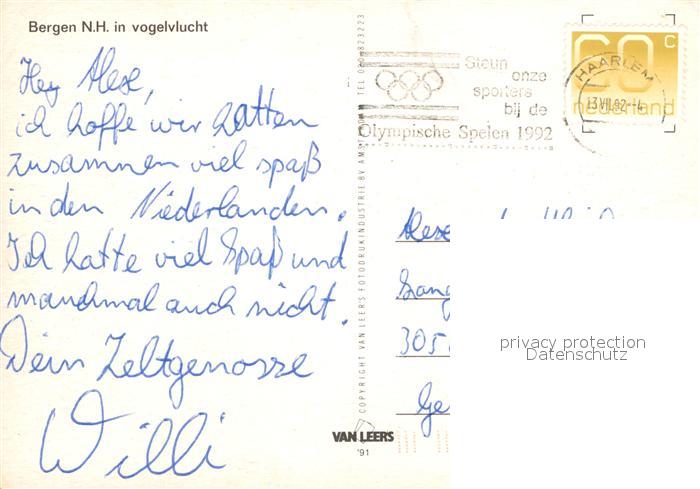 Bergen N.H. in vogelvlucht
Hey Alex,
ich hoffe wir hatten
zusammen viel spaß
in den Niederlanden.
Ich hatte viel Spaß und
manchmal auch nicht.
Dein Zeltgenosse
Willi
COPYRIGHT VAN LEER'S FOTODRUKINDUSTRIE BV
VAN LEERS
'91
Steun
onze
sporters
bij de
Olympische Spelen 1992
HAARLEM
13.VII.92
60 c
nederland
Alex
305
privacy protection
Datenschutz